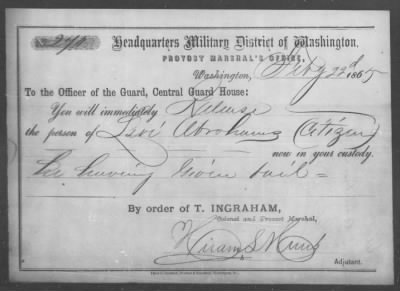 Headquarters Military District of Washington,
PROVOST MARSHAL'S OFFICE,
Washington, Feby 23d 1865
To the Officer of the Guard, Central Guard House:
You will immediately Release
the person of Levi Abrahams Citizen
now in your custody.
he having Given bail =
By order of T. INGRAHAM,
Colonel and Provost Marshal,
Hiram S
Adjutant.